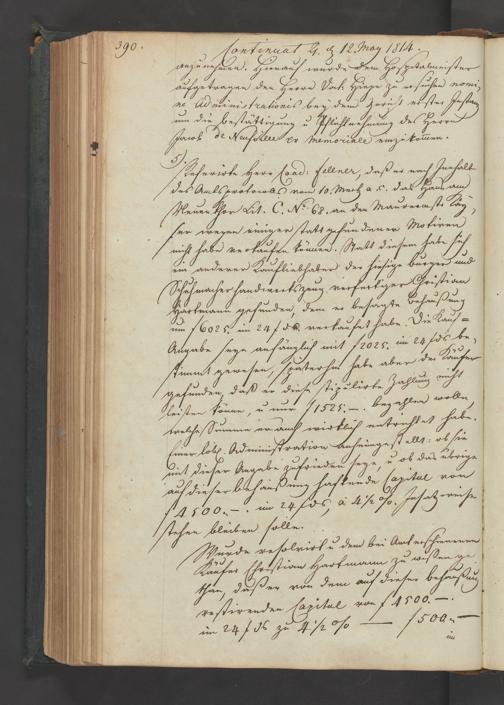 390.
Continuat. d. d. 12. May 1814.
anzunehmen. Hierauf wurde dem Hospitalmeister
aufgetragen den Herrn zu ersuchen nomi-
ne Administrationis bey dem
um die Bestättigung u. Pflichtnehmung des Herrn
Jacob De Neufville per memoriale einzukommen.
3.) Referirte Herr Cond. Fellner, daß er nach Innhalt
des Amtsprotocols vom 10. Merz a. c. das Haus am
Neuen Thor Lit. C. No. 68. an den Maurermstr
wegen einiger statt gefundener Motiven
nicht habe verkaufen können. Statt diesem habe sich
ein anderer Kaufliebhaber der hiesige Burger und
Schuhmacherhandwerkszeug verfertiger Christian
Hartmann gefunden, dem er besagte Behaußung
um f 6025. im 24 f ds. verkauft habe. Die Kauf-
Angabe seye anfänglich mit f 2025. im 24 f ds be-
stimmt gewesen, späterhin habe aber der Käufer
gefunden, daß er diese stipulirte Zahlung nicht
leisten könne, u. nur f 1525.-. bezahlen wolle,
welche Summe er auch wirklich entrichtet habe.
Einer löbl. Administration anheimgestellt: ob sie
mit dieser Angabe zufrieden seye, u. ob das übrige
auf dieser Behaußung haftende Capital von
f 4500.-. im 24 f ds, à 4 1/2 %
stehen bleiben solle.
Wurde resolvirt u. dem bei Amt erschienenen
Käufer Christian Hartmann zu wissen ge-
than, daß er von dem auf dieser Behaußung
restirenden Capital von f 4500.-.
im 24 f ds zu 4 1/2 % — f 500.-
im